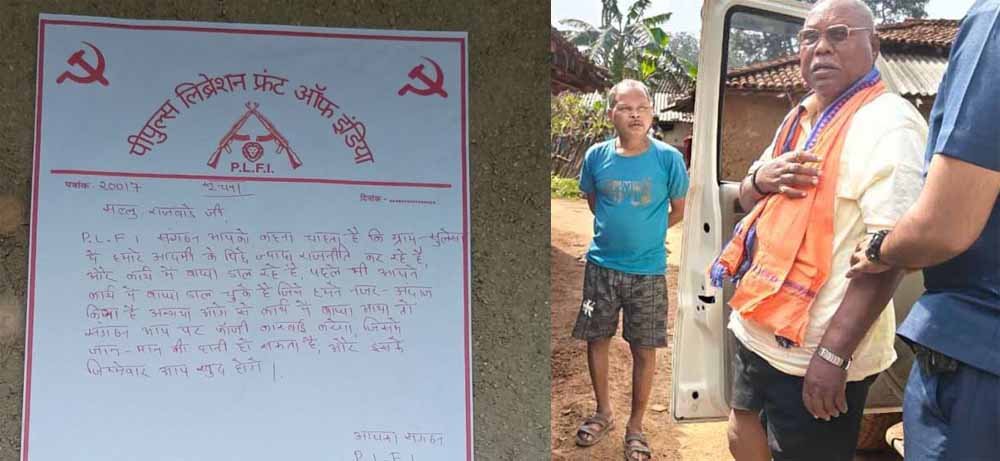 पीपुल्स लिब्रेशन फ्रंट ऑफ इंडिया
P.L.F.I.
पत्रांक- 20017 सूचना दिनांक - ..............
राजवाडे जी,
P.L.F.I संगठन आपको कहना चाहता है कि ग्राम-
में हमारे आदमी के पिछे, ज्यादा राजनीति कर रहे है,
और कार्य में बाधा डाल रहे है, पहले भी आपने
कार्य में बाधा डाल चुके है जिसे हमने नजर-अंदाज
किया है अन्यथा आगे से कार्य में बाधा आया तो
संगठन आप पर फौजी कारवाई करेगा, जिसमें
जान-माल की हानी हो सकता है, और इसके
जिम्मेवार आप खुद होगें।
आपका संगठन
P.L.F.I